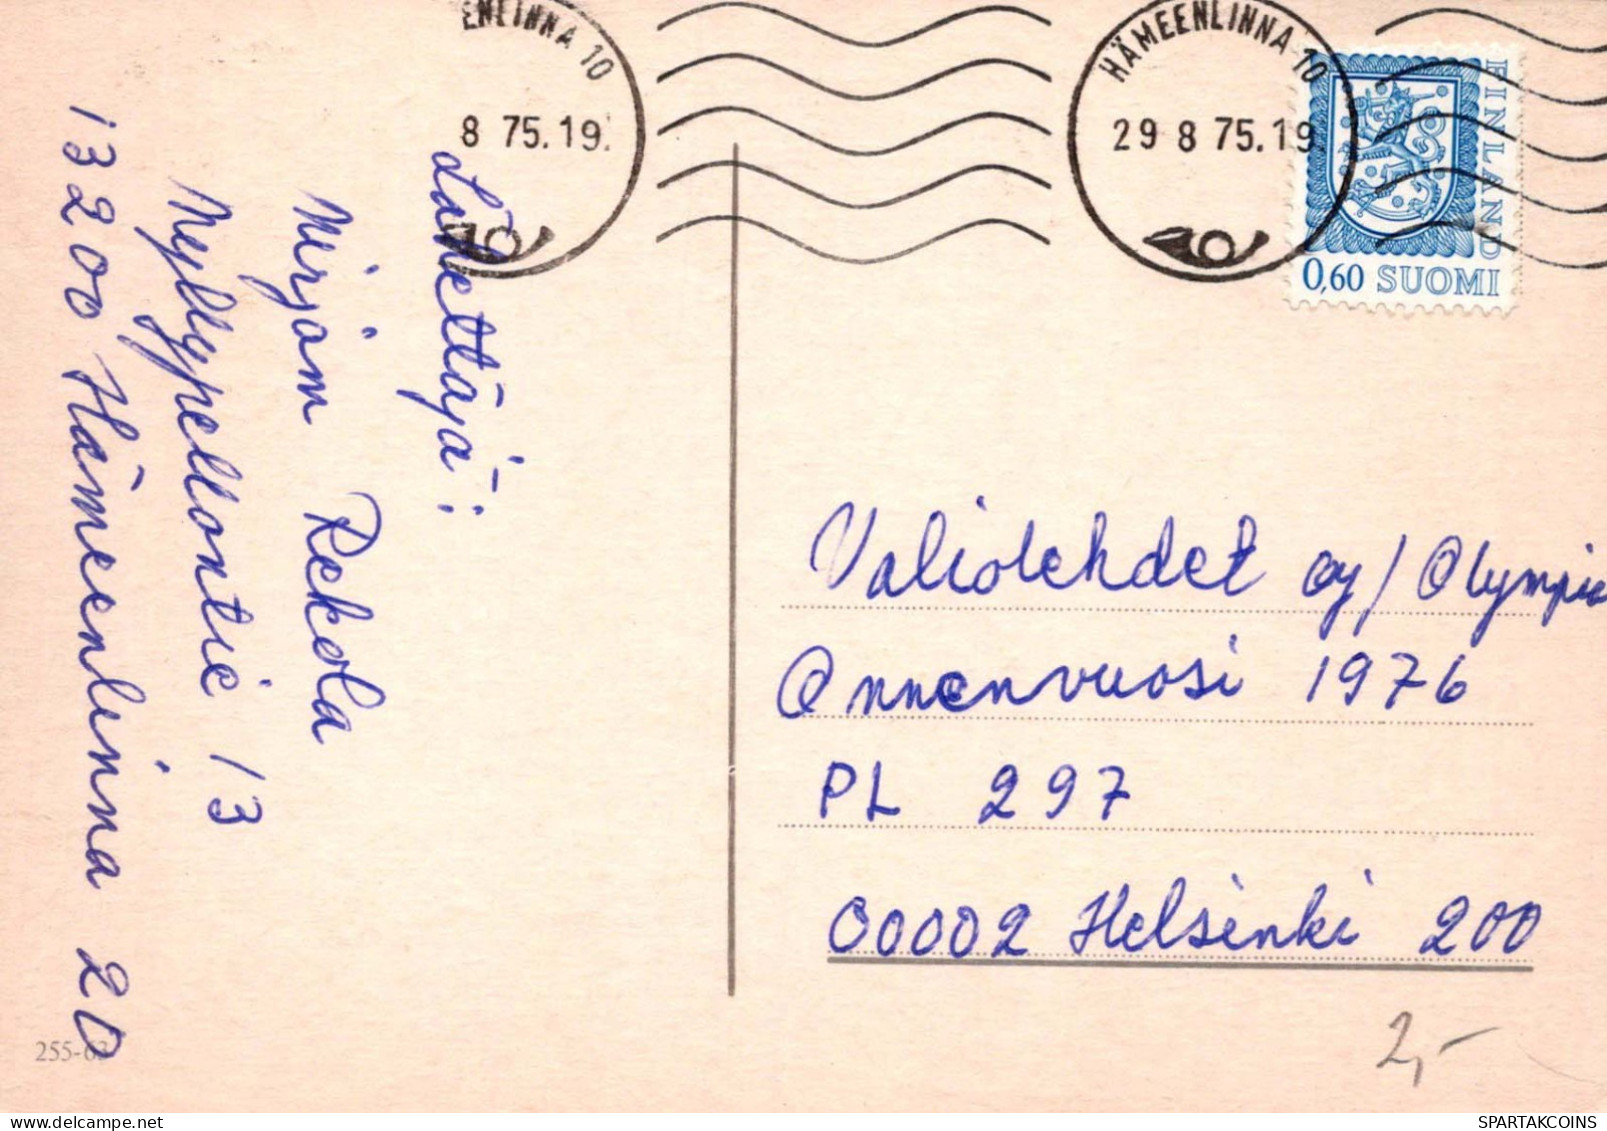 ENLINNA 10
8 75.19.
HÄMEENLINNA 10
29 8 75.19.
FINLAND
0,60 SUOMI
Lähettäjä:
Mirjam Rekola
Myllypellontie 13
13200 Hämeenlinna 20
Valiolehdet oy/Olympia
Onnenvuosi 1976
PL 297
00002 Helsinki 200
2,-
255-63
www.delcampe.net
SPARTAKCOINS